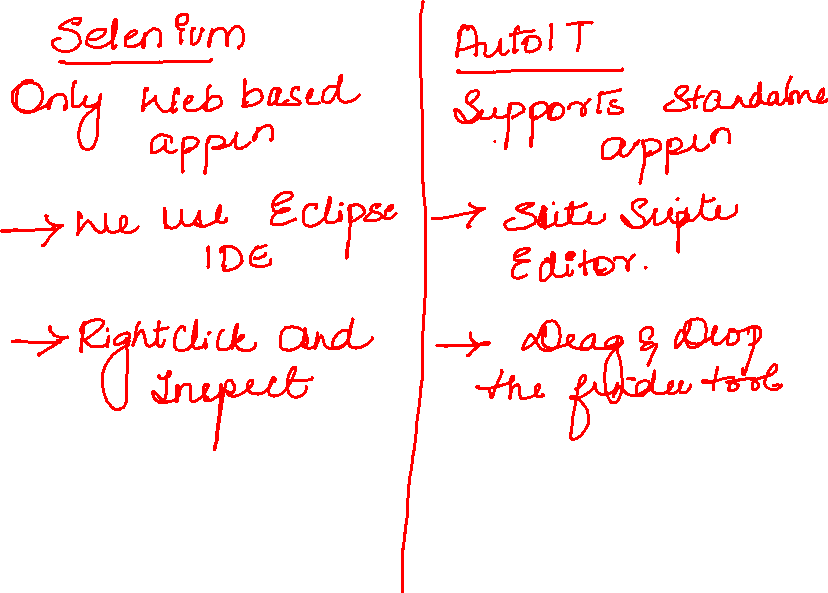 Selenium
Only Web based
appln
→ We use Eclipse
IDE
→ Rightclick and
Inspect
AutoIT
Supports Standalone
appln
→ Scite Scripte
Editor.
→ Drag & Drop
the finder tool